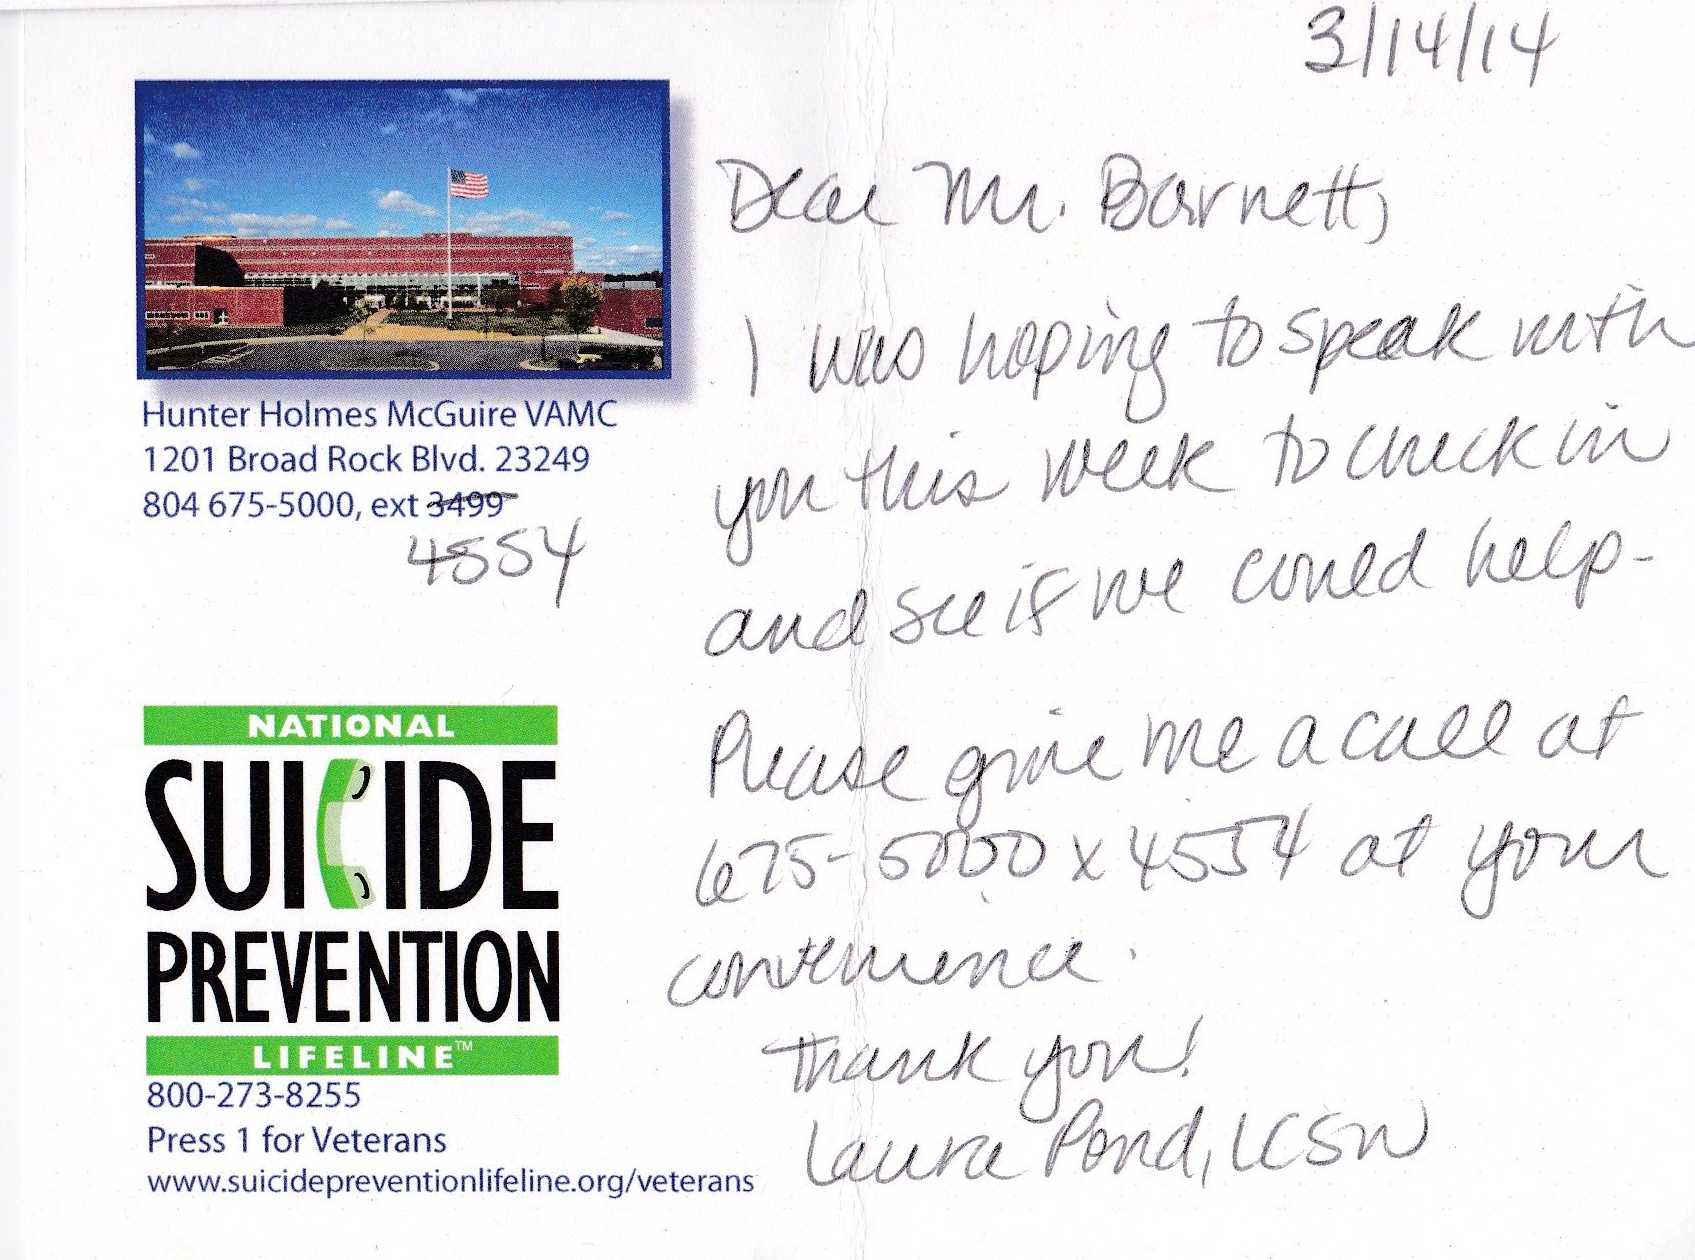 3/14/14
Dear Mr. Barnett,
I was hoping to speak with
you this week to check in
and see if we could help-
Please give me a call at
675-5000 x 4554 at your
convenience.
Thank you!
Laura Pond, LCSW
Hunter Holmes McGuire VAMC
1201 Broad Rock Blvd. 23249
804 675-5000, ext 3499
4554
NATIONAL
SUICIDE
PREVENTION
LIFELINE™
800-273-8255
Press 1 for Veterans
www.suicidepreventionlifeline.org/veterans